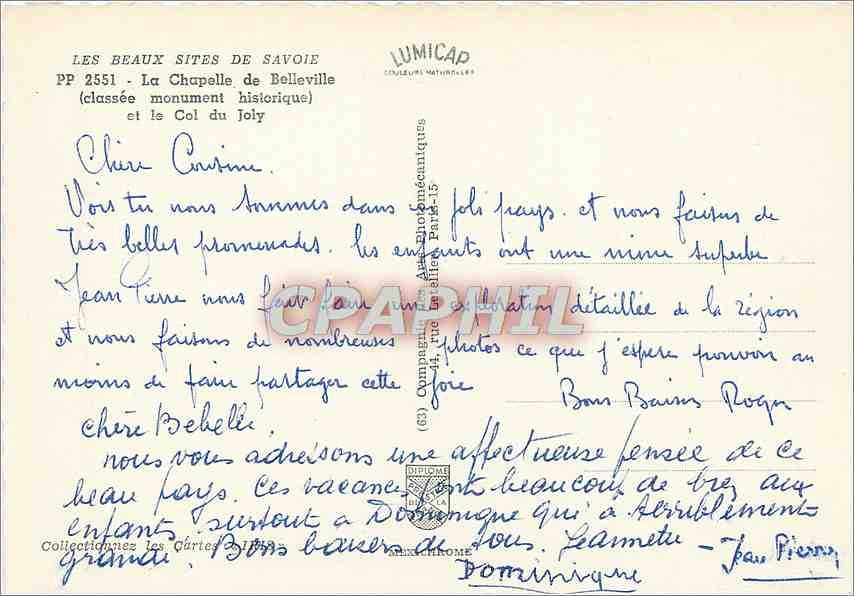 LES BEAUX SITES DE SAVOIE
PP 2551 - La Chapelle de Belleville
(classée monument historique)
et le Col du Joly
LUMICAP
COULEURS NATURELLES
Chère Cousine.
Vois tu nous sommes dans un joli pays. et nous faisons de
très belles promenades. les enfants ont une mine superbe
Jean Pierre nous fait faire une exploration détaillée de la région
et nous faisons de nombreuses photos ce que j'espere pouvoir au
moins de faire partager cette joie
Bons Baisers Roger
chère Bebelle.
nous vous adressons une affectueuse pensée de ce
beau pays. Ces vacances font beaucoup de bien aux
enfants surtout a Dominique qui a terriblement
grandi. Bons baisers de tous. Jeannette - Jean Pierre
Dominique
(63) Compagnie des Arts Photomécaniques
44, rue Letellier, Paris-15
CPAPHIL
DIPLOME
PRESTIGE
DE LA
Collectionnez les Cartes "IRIS"
MEXICHROME